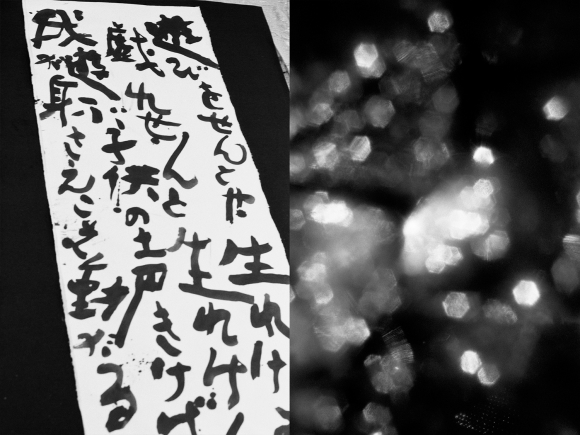 遊びをせんとや生れけ
戯れせんと生れけん
遊ぶ子供の声きけば
我が身さえこそ動がる